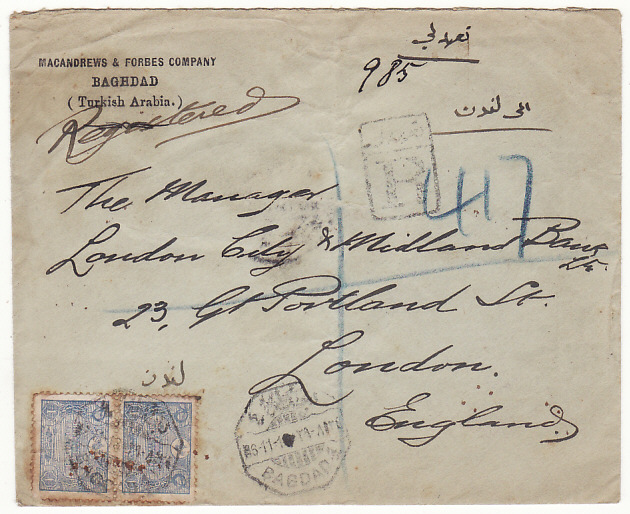 MACANDREWS & FORBES COMPANY
BAGHDAD
(Turkish Arabia.)
Registered
تعهدلي
985
الى لندن
R
417
The Manager
London City & Midland Bank
Ld.
23, Gt Portland St.
London.
England
لندن
BAGDAD